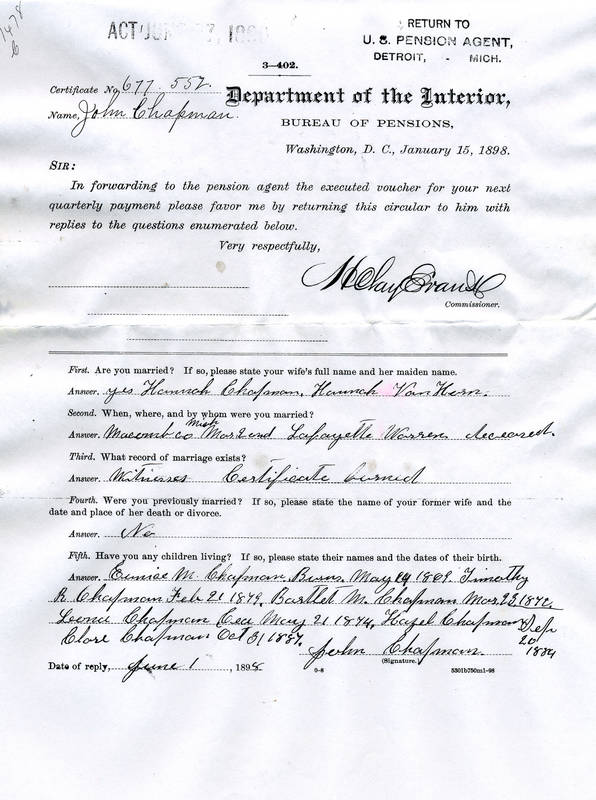 1478
RETURN TO
U. S. PENSION AGENT,
DETROIT, - MICH.
3—402.
Certificate No. 677.552.
Department of the Interior,
Name, John Chapman.
BUREAU OF PENSIONS,
Washington, D. C., January 15, 1898.
SIR:
In forwarding to the pension agent the executed voucher for your next
quarterly payment please favor me by returning this circular to him with
replies to the questions enumerated below.
Very respectfully,
H Clay Evans
Commissioner.
First. Are you married? If so, please state your wife's full name and her maiden name.
Answer. yes Hannah Chapman, Hannah Van Horn.
Second. When, where, and by whom were you married?
Answer. Macomb co Mich Mar 2end Lafayette Warren deceased.
Third. What record of marriage exists?
Answer. Witnesses Certificate burned
Fourth. Were you previously married? If so, please state the name of your former wife and the
date and place of her death or divorce.
Answer. No
Fifth. Have you any children living? If so, please state their names and the dates of their birth.
Answer. Eunice M. Chapman, Burns. May 1869 Timothy
R. Chapman Feb 21 Bartlet M. Chapman Mar. 23 1872,
Chapman May 21 1874, Hazel Chapman Sep 20 1884
Clare Chapman Oct 31 1887.
John Chapman.
(Signature.)
Date of reply, June 1, 1898
0-8
5301b750m1-98